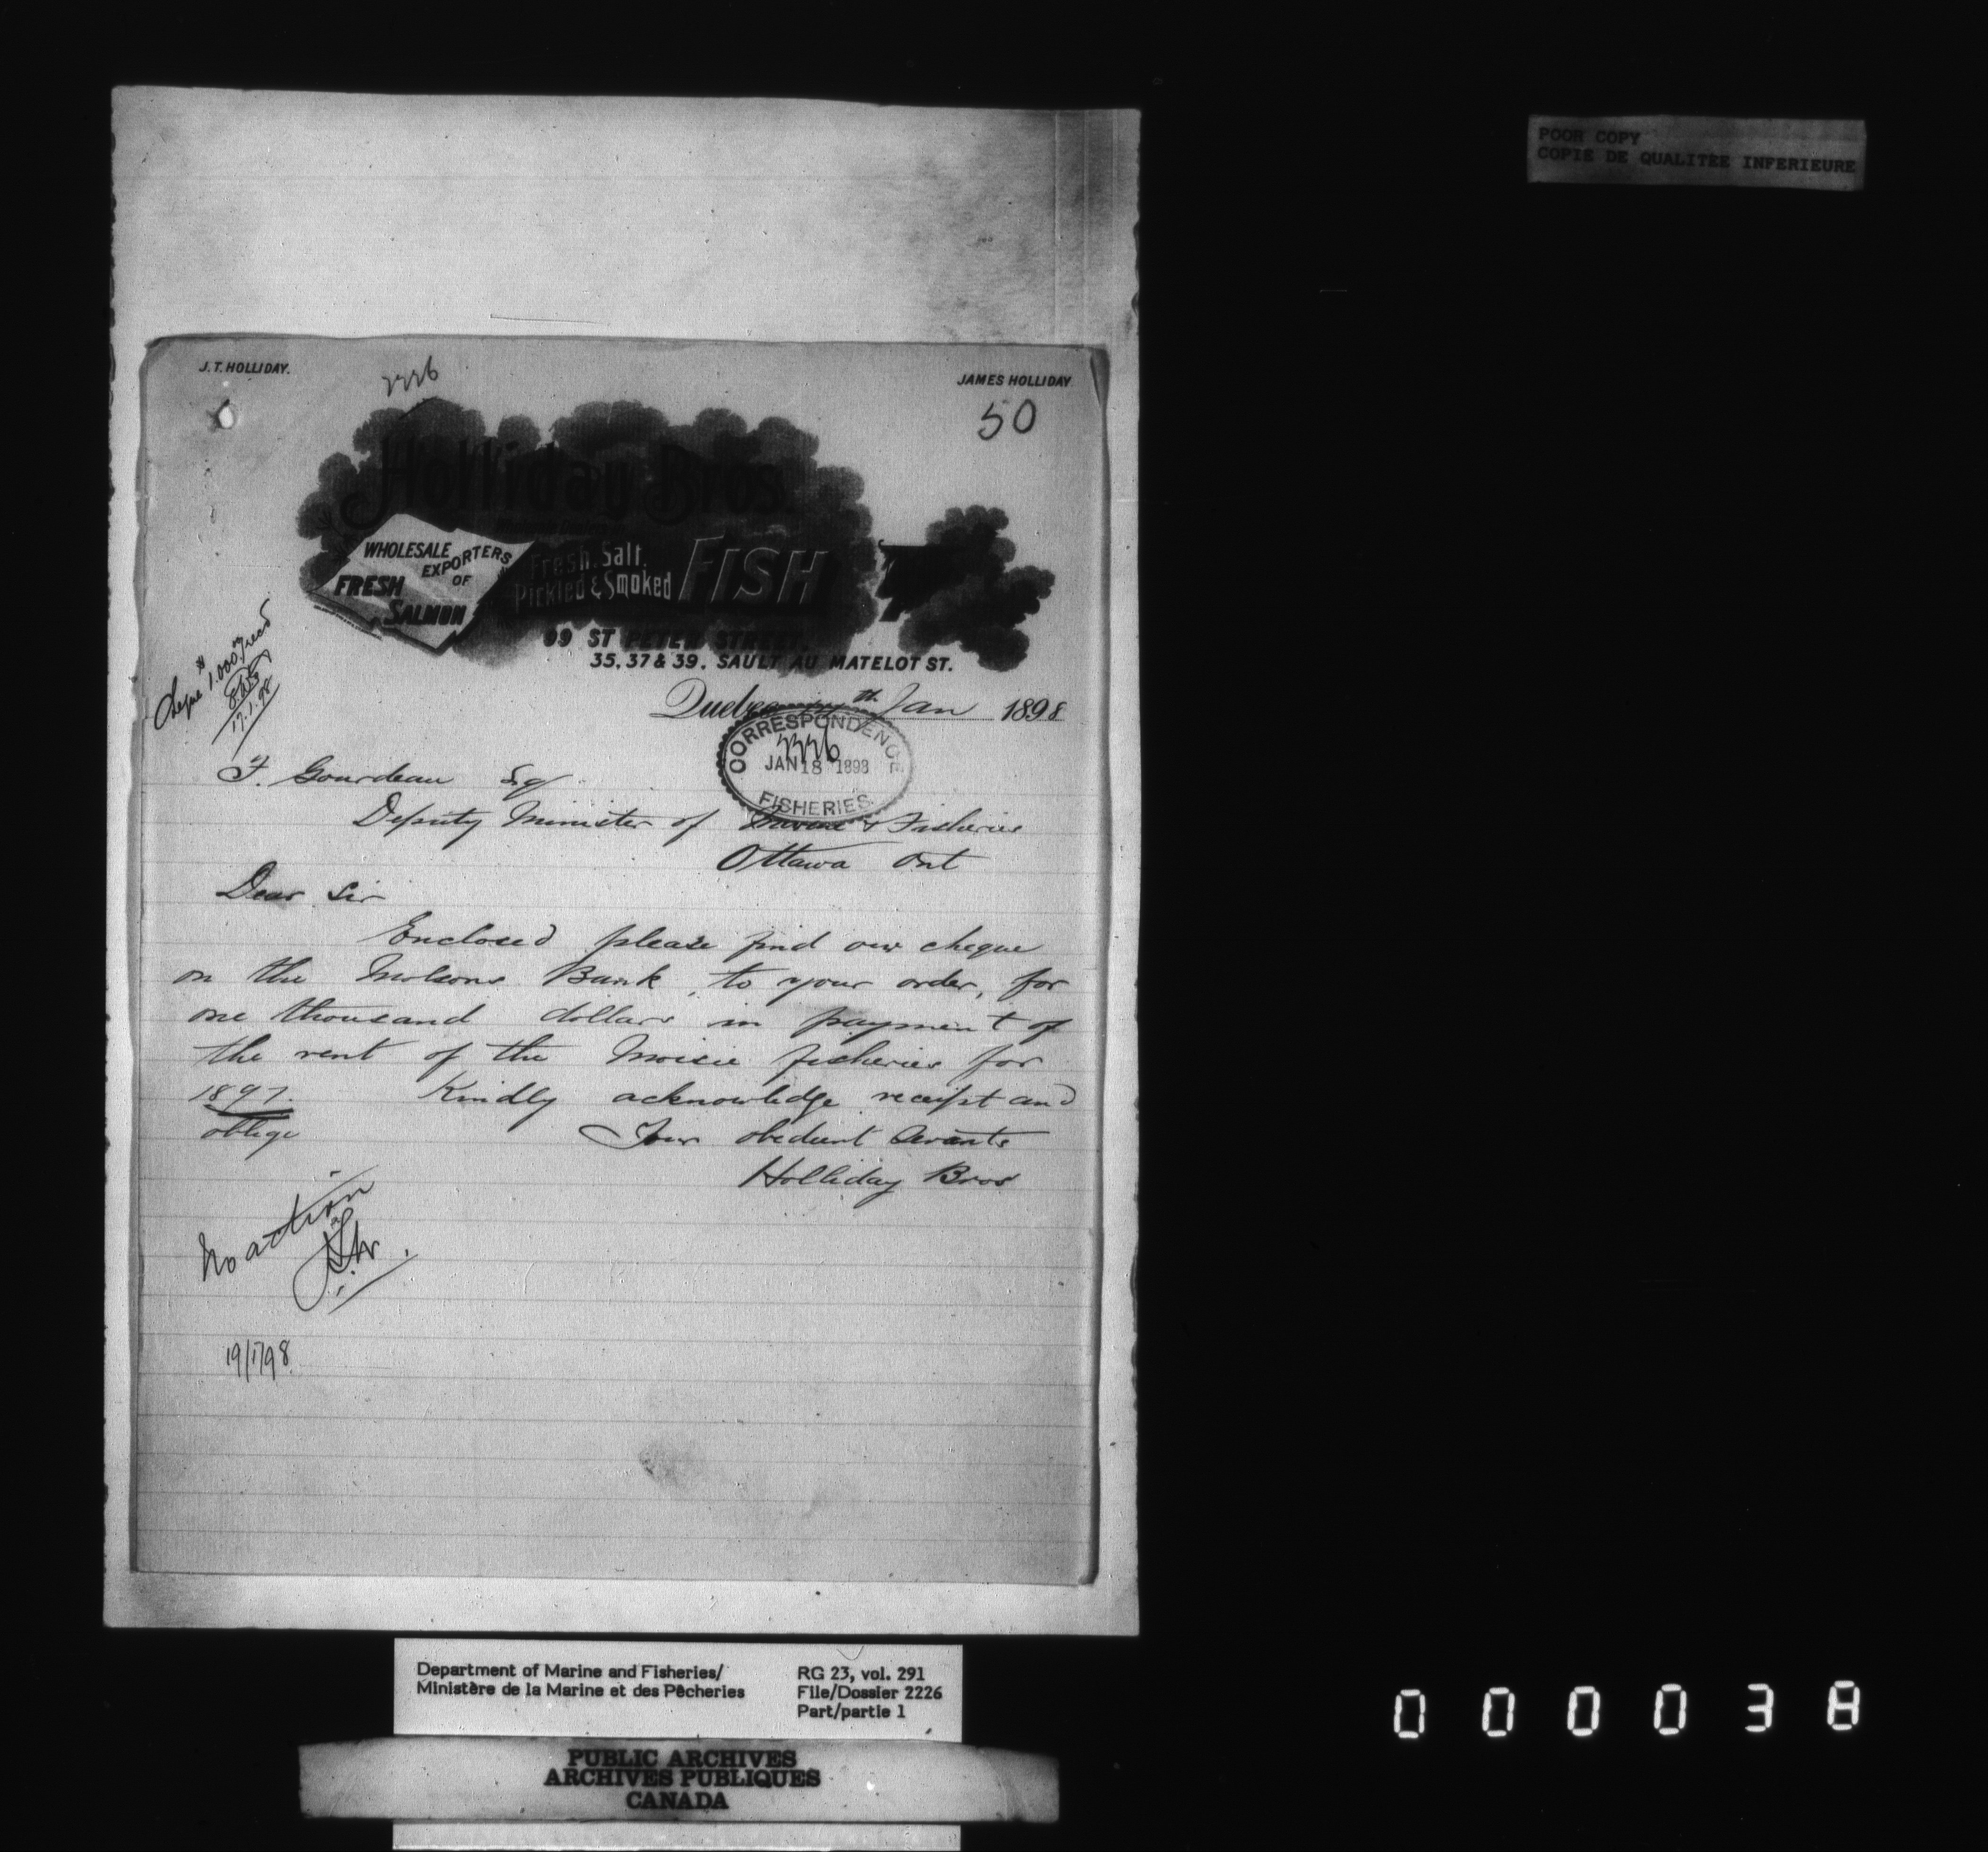 POOR COPY
COPIE DE QUALITEE INFERIEURE
J. T. HOLLIDAY.
2226
JAMES HOLLIDAY
50
Holliday Bros.
WHOLESALE EXPORTERS OF
FRESH SALMON
Fresh. Salt.
Pickled & Smoked
FISH
99 ST PETER STREET.
35, 37 & 39. SAULT AU MATELOT ST.
Cheque $1.000 recd
17.1.98
Quebec th Jan 1898
CORRESPONDENCE
2226
JAN 18 1898
FISHERIES
F. Gourdeau Esq
Deputy Minister of Marine & Fisheries
Ottawa Ont
Dear Sir
Enclosed please find our cheque
on the Molsons Bank, to your order, for
one thousand dollars in payment of
the rent of the Moisie fisheries for
1897. Kindly acknowledge receipt and
oblige Your obedient Servants
Holliday Bros
No action
19/1/98
Department of Marine and Fisheries/
Ministère de la Marine et des Pêcheries
RG 23, vol. 291
File/Dossier 2226
Part/partie 1
PUBLIC ARCHIVES
ARCHIVES PUBLIQUES
CANADA
000038